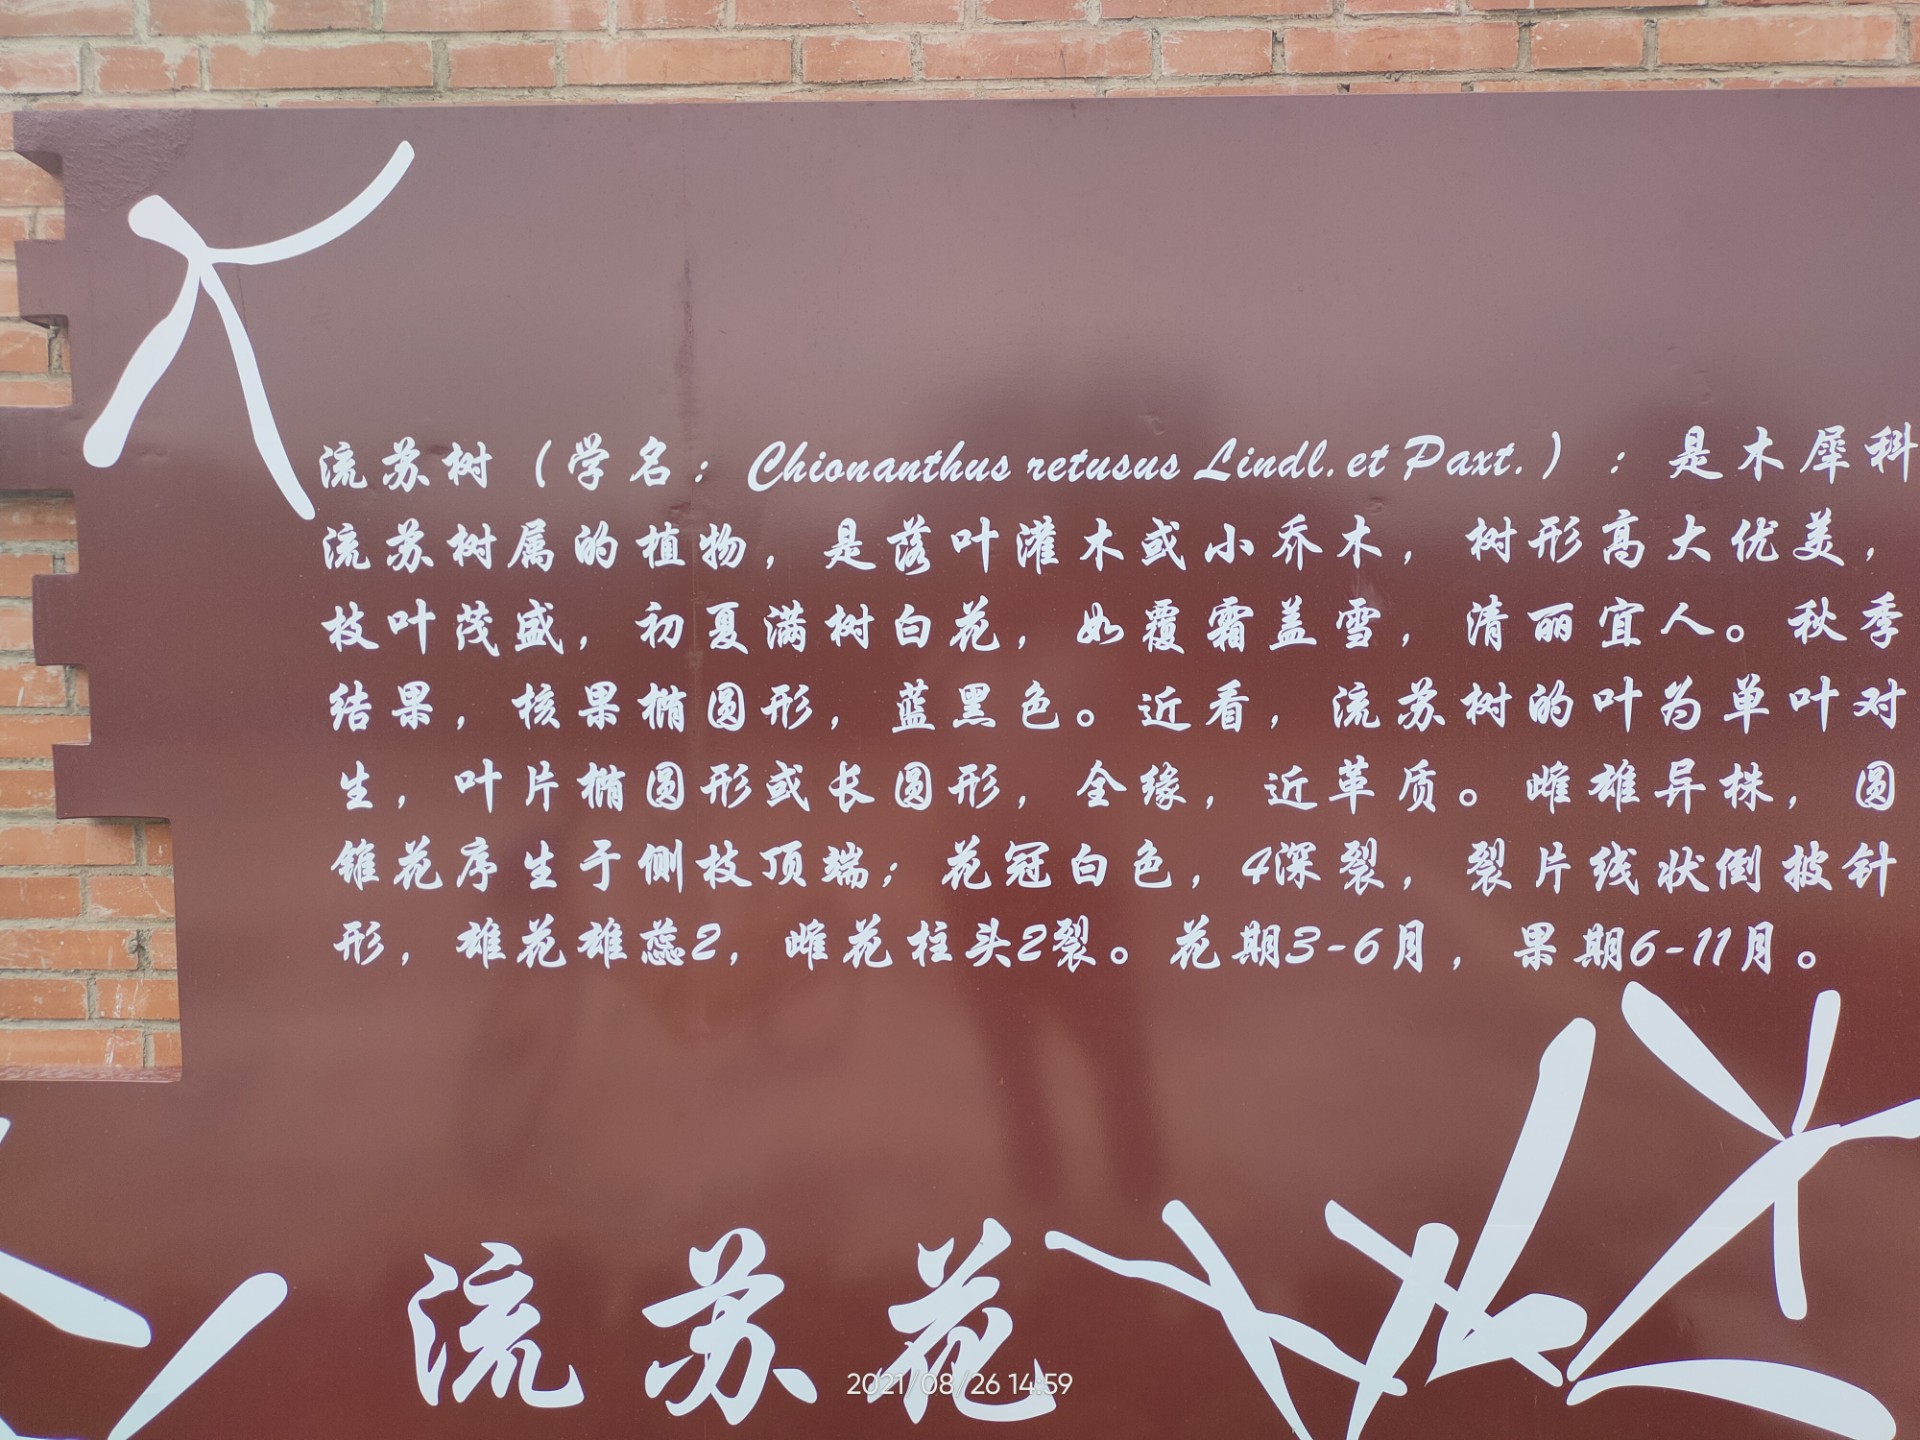 流苏树（学名：Chionanthus retusus Lindl. et Paxt.）：是木犀科
流苏树属的植物，是落叶灌木或小乔木，树形高大优美，
枝叶茂盛，初夏满树白花，如覆霜盖雪，清丽宜人。秋季
结果，核果椭圆形，蓝黑色。近看，流苏树的叶为单叶对
生，叶片椭圆形或长圆形，全缘，近革质。雌雄异株，圆
锥花序生于侧枝顶端；花冠白色，4深裂，裂片线状倒披针
形，雄花雄蕊2，雌花柱头2裂。花期3-6月，果期6-11月。
流苏花
2021/08/26 14:59